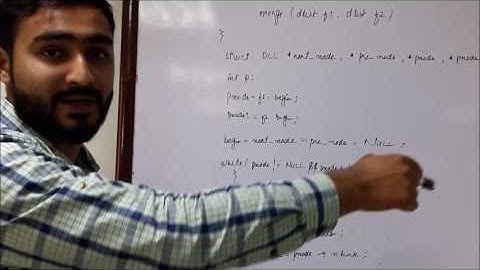 merge ( dlist f1 , dlist f2 )
}
struct DLL * next_node , * pre_node , * pnode , * pnode
int p;
pnode = f1 . begin;
pnode1 = f2 . begin;
begin = next_node = pre_node = NULL ;
while ( pnode != NULL &&
{
= pnode → nlink ;